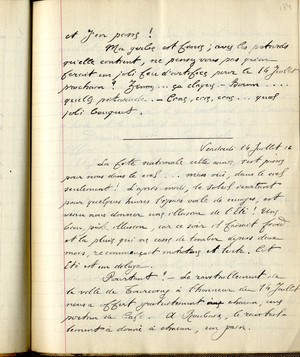 et j'en passe !
Ma gerbe est finie ; avec les pétards
qu'elle contient, ne pensez vous pas qu'on
ferait un joli feu d'artifice pour le 14 Juillet
prochain ?
quelle pétarade - Cras, cras, cras... quel
joli bouquet.
Vendredi 14 Juillet 16
La fête nationale cette année s'est passée
pour nous dans le ... mais oui, dans le
seulement ! L'après midi, le soleil
pour quelques heures l'épais voile de nuages, est
venu nous donner une illusion de l'Eté ! Une
illusion, car ce soir il faisait froid
et la pluie qui ne cesse de tomber depuis deux
mois, recommençait et lente. Cet
Eté est un déluge.
Pourtant ! - Le ravitaillement de
la ville de Tourcoing à l'honneur du 14 Juillet
nous a offert gratuitement à chacun, une
portion de Café. A Roubaix, le ravitail-
lement a donné à chacun, un pain.